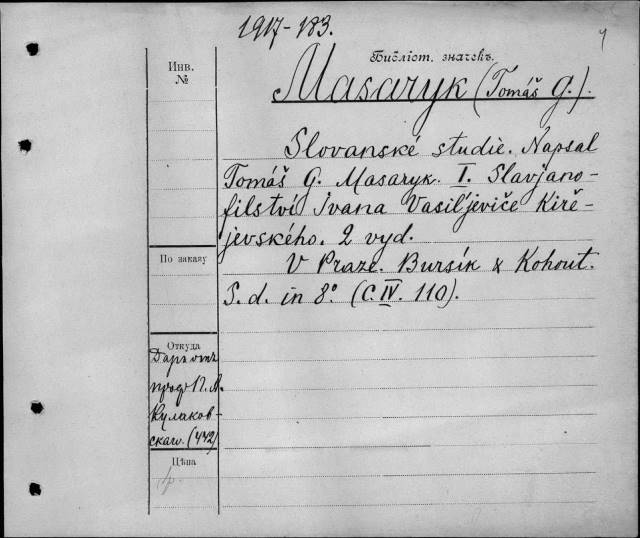 1917-183.
Библіот. значекъ.
Инв.
№
Masaryk (Tomáš G.).
Slovanské studie. Napsal
Tomáš G. Masaryk. I. Slavjano-
filství Ivana Vasiľjeviče Kirě-
jevského. 2 vyd.
V Praze. Bursík & Kohout.
S. d. in 8º. (C. IV. 110).
По заказу
Откуда
Даръ отъ
проф. П. А.
Кулаков-
скаго. (442)
Цѣна